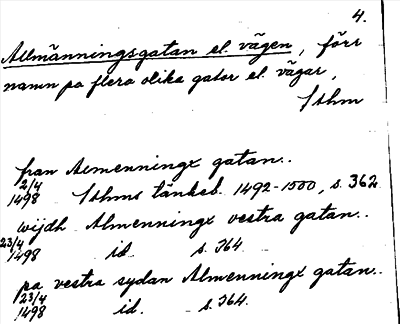 4.
Allmänningsgatan el. vägen, förr
namn på flera olika gator el. vägar,
Sthm
fran Almenningx gatan..
2/4 1498 Sthms tänkeb. 1492-1500, s. 362
wijdh Almenningx vestra gatan..
23/4 1498 id. s. 364
pa vestra sydan Almenningx gatan..
23/4 1498 id. s. 364.